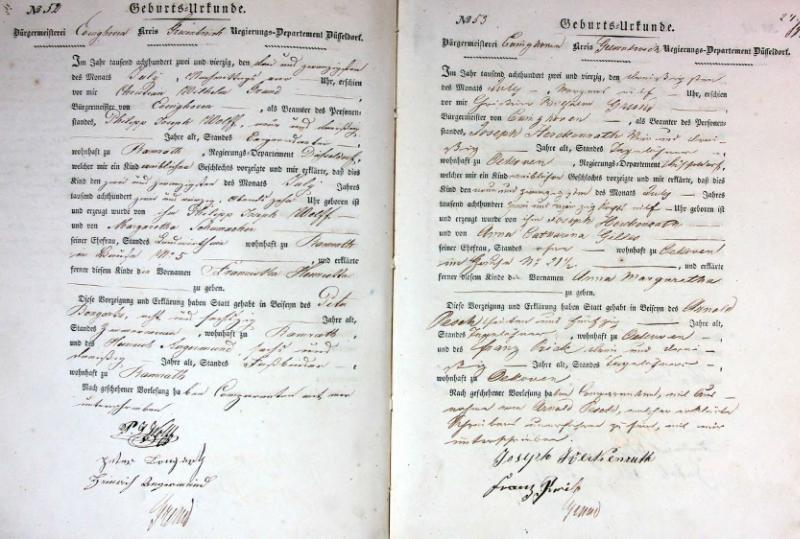 No 52
Geburts-Urkunde.
Bürgermeisterei Evinghoven Kreis Grevenbroich Regierungs-Departement Düsseldorf.
Im Jahr tausend achthundert zwei und vierzig, den drei und zwanzigsten
des Monats July, Nachmittags Uhr, erschien
vor mir Christian Wilhelm Grund
Bürgermeister von Evinghoven, als Beamter des Personen-
standes, Philipp Joseph Wolff, und dreißig
Jahre alt, Standes
wohnhaft zu Ramrath, Regierungs-Departement Düsseldorf,
welcher mir ein Kind weiblichen Geschlechts vorzeigte und mir erklärte, daß dies
Kind den zwei und zwanzigsten des Monats July Jahres
tausend achthundert zwei und vierzig, Abends zehn Uhr geboren ist
und erzeugt wurde von ihm Philipp Joseph Wolff
und von Margaretha Schumacher
seiner Ehefrau, Standes wohnhaft zu Ramrath
im Hause No 5, und erklärte
ferner diesem Kinde die Vornamen Franziska Henriette
zu geben.
Diese Vorzeigung und Erklärung haben Statt gehabt in Beiseyn des Peter
Bongartz, acht und Jahre alt,
Standes Zimmermann, wohnhaft zu Ramrath
und des Heinrich Angermund sechs und
dreißig Jahre alt, Standes Faßbinder
wohnhaft zu Ramrath
Nach geschehener Vorlesung haben Comparenten mit mir
unterschrieben
P J Wolff
Peter Bongartz
Heinrich Angermund
Grund
No 53
Geburts-Urkunde.
Bürgermeisterei Evinghoven Kreis Grevenbroich Regierungs-Departement Düsseldorf.
Im Jahr tausend achthundert zwei und vierzig, den dreißigsten
des Monats July, Morgens eilf Uhr, erschien
vor mir Christian Wilhelm Grund
Bürgermeister von Evinghoven, als Beamter des Personen-
standes, Joseph Herckenrath und drei-
ßig Jahre alt, Standes Tagelöhner
wohnhaft zu Oekoven, Regierungs-Departement Düsseldorf,
welcher mir ein Kind weiblichen Geschlechts vorzeigte und mir erklärte, daß dies
Kind den neun und zwanzigsten des Monats July Jahres
tausend achthundert zwei und vierzig eilf Uhr geboren ist
und erzeugt wurde von ihm Joseph Herckenrath
und von Anna Catharina
seiner Ehefrau, Standes ohne wohnhaft zu Oekoven
im Hause No, und erklärte
ferner diesem Kinde die Vornamen Anna Margaretha
zu geben.
Diese Vorzeigung und Erklärung haben Statt gehabt in Beiseyn des Arnold
Pesch, und fünfzig Jahre alt,
Standes Tagelöhner, wohnhaft zu Oekoven
und des Franz und drei-
ßig Jahre alt, Standes Tagelöhner
wohnhaft zu Oekoven
Nach geschehener Vorlesung haben Comparenten, mit Aus-
nahme von Arnold Pesch, welcher erklärte
Schreibens unerfahren zu sein, mit mir
unterschrieben.
Joseph Herckenrath
Franz
Grund